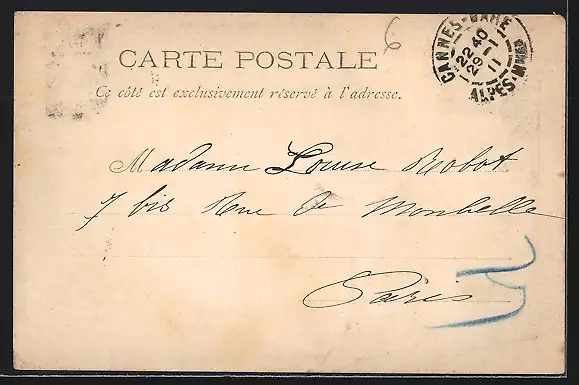 6
CANNES-GARE
22 40
29 -1
11
ALPES-MMES
CARTE POSTALE
Ce côté est exclusivement réservé à l'adresse.
Madame Louise Robot
7 bis Rue de Monbelle
Paris